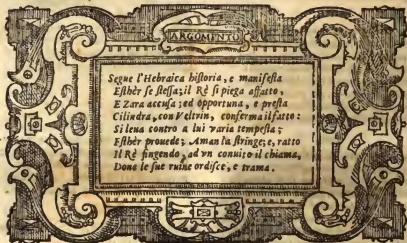 ARGOMENTO
Segue l'Hebraica historia, e manifesta
Esthèr se stessa; il Rè si piega affatto,
E Zara accusa; ed opportuna, e presta
Cilindra, con Veltrin, conferma il fatto:
Si leua contro a lui varia tempesta;
Esthèr prouede; Aman la stringe; e, ratto
Il Rè fingendo, ad vn conuito il chiama,
Doue le sue ruine ordisce, e trama.